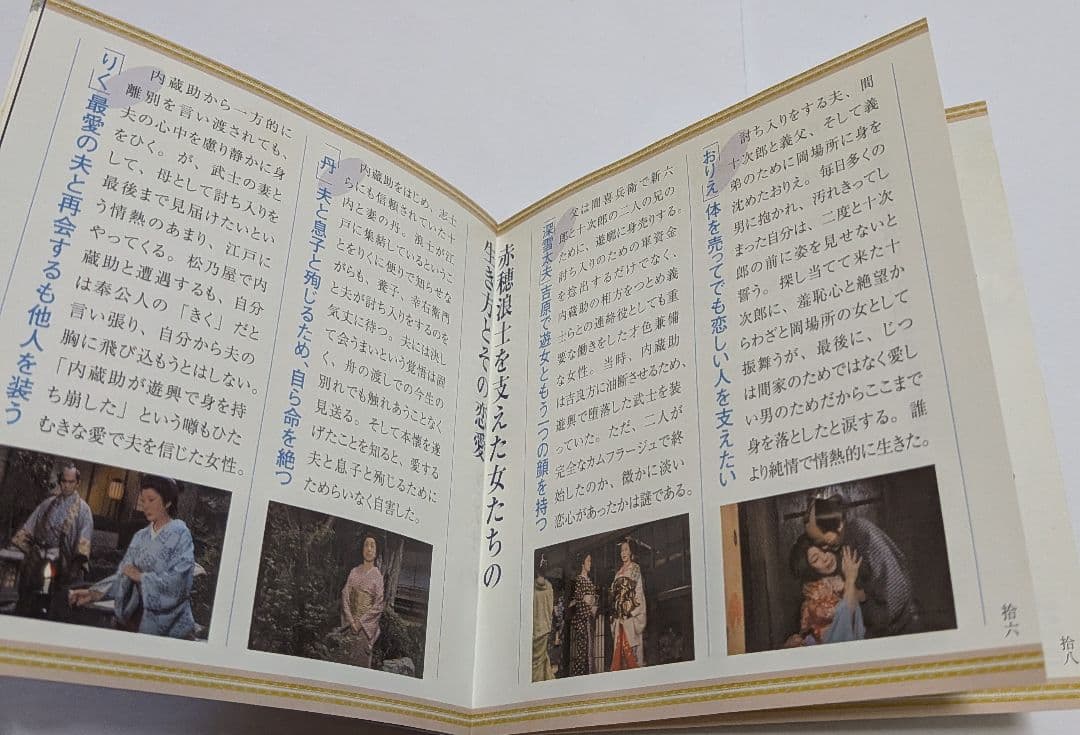 「りく」最愛の夫と再会するも他人を装う
内蔵助から一方的に
離別を言い渡されても、
夫の心中を慮り静かに身
をひく。が、武士の妻と
して、母として討ち入りを
最後まで見届けたいとい
う情熱のあまり、江戸に
やってくる。松乃屋で内
蔵助と遭遇するも、自分
は奉公人の「きく」だと
言い張り、自分から夫の
胸に飛び込もうとはしない。
「内蔵助が遊興で身を持
ち崩した」という噂もひた
むきな愛で夫を信じた女性。
「丹」夫と息子と殉じるため、自ら命を絶つ
内蔵助をはじめ、志士
らにも信頼されていた十
内と妻の丹。浪士が江
戸に集結しているというこ
とをりくに便りで知らせな
がらも、養子、幸右衛門
と夫が討ち入りをするのを
気丈に待つ。夫には決し
て会うまいという覚悟は固
く、舟の渡しでの今生の
別れでも触れあうことなく
見送る。そして本懐を遂
げたことを知ると、愛する
夫と息子と殉じるために
ためらいなく自害した。
赤穂浪士を支えた女たちの
生き方とその恋愛
「深雪太夫」吉原で遊女ともう一つの顔を持つ
父は間喜兵衛で新六
郎と十次郎の二人の兄の
ために、遊廓に身売りする。
討ち入りのための軍資金
を捻出するだけでなく、
内蔵助の相方をつとめ義
士らとの連絡役としても重
要な働きをした才色兼備
な女性。当時、内蔵助
は吉良方に油断させるため、
遊興で堕落した武士を装
っていた。ただ、二人が
完全なカムフラージュで終
始したのか、微かに淡い
恋心があったかは謎である。
「おりえ」体を売ってでも恋しい人を支えたい
討ち入りをする夫、間
十次郎と義父、そして義
弟のために岡場所に身を
沈めたおりえ。毎日多くの
男に抱かれ、汚れきってし
まった自分は、二度と十次
郎の前に姿を見せないと
誓う。探し当てて来た十
次郎に、羞恥心と絶望か
らわざと岡場所の女として
振舞うが、最後に、じつ
は間家のためではなく愛し
い男のためだからここまで
身を落としたと涙する。誰
より純情で情熱的に生きた。
拾六
拾八